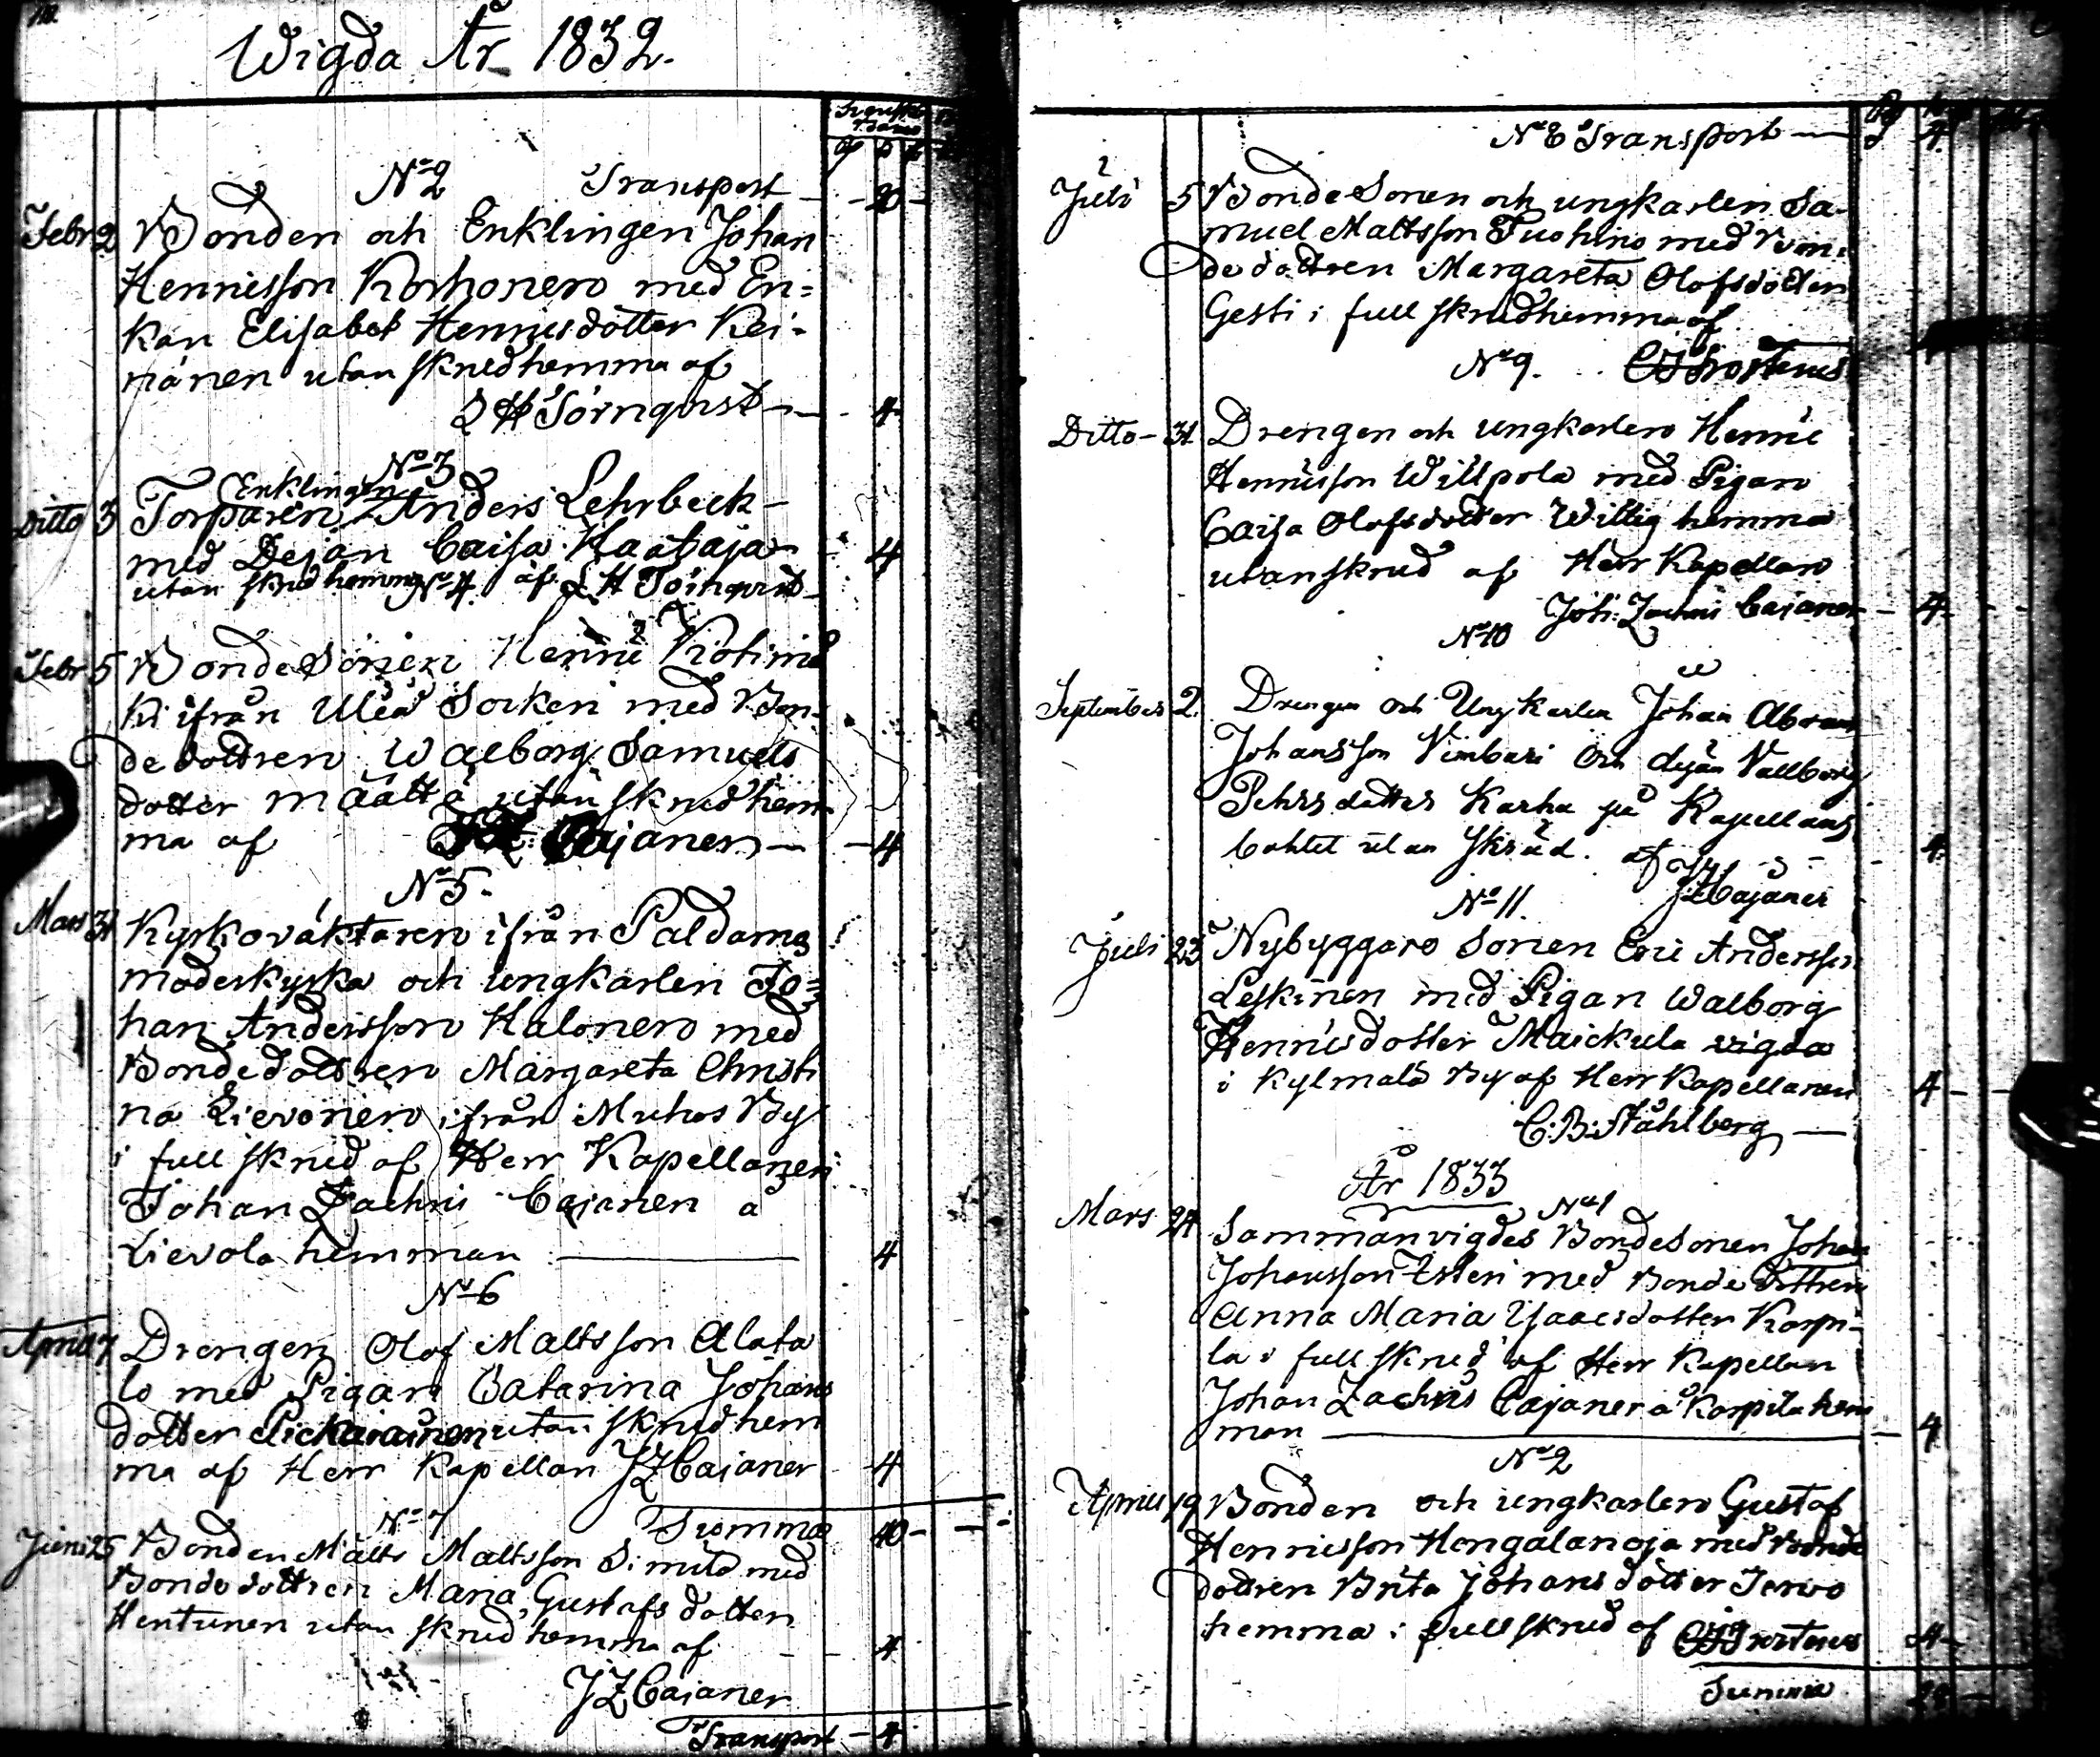 Wigda År 1832.
Svenska
Banco
No 2 Transport - 20 -
Febr 2 Bonden och Enklingen Johan
Henricsson Korhonen med En=
kan Elisabet Henricsdotter Kei-
nänen utan skrud hemma af
L H Törnqvist - 4
No 3
Enklingen
Ditto 3 Torparen Anders Lehrbeck
med Dejan Caisa Haataja 4
utan skrud hemma af L H Törnqvist
No 4
Febr 5 BondeSonen Henric Kiohinic
ki ifrån Uleå Socken med Bon-
dedottren Walborg Samuels
dotter Määttä utan skrud hem
ma af Cajaner - 4
No 5.
Mars 31 Kyrkovaktaren ifrån Paldamo
moderkyrka och ungkarlen Jo=
han Andersson Halonen med
Bondedottren Margareta Christi
na Lievonen ifrån Muhos By
i full skrud af Herr Kapellanen
Johan Zachris Cajanen å
Lievola hemman 4
No 6
April 7 Drengen Olof Mattsson Alata
lo med Pigan Catarina Johans
dotter utan skrud hem
ma af Herr Kapellan J Z Cajaner 4
Summa 40 -
No 7
Juni 25 Bonden Matts Mattsson Similä med
Bondedottren Maria Gustafsdotter
Hentunen utan skrud hemma af 4
J Z Cajaner
Transport - 4
No 8 Transport - 4
Juli 5 BondeSonen och ungkarlen Sa-
muel Mattsson Tuohino med Bon-
dedottren Margareta Olofsdotter
Gesti i full skrud hemma af
No 9. Frosterus
Ditto - 31 Drengen och ungkarlen Henric
Henricsson Willpola med Pigan
Caisa Olofsdotter Willig hemma
utan skrud af Herr Kapellan
Joh: Zachris Cajaner - 4 -
No 10
September 2. Drengen och Ungkarlen Johan Abram
Johansson Vimbari och dejan Vallborg
Pehrsdotter Karhu på Kapellans
bohlet utan skrud. af 4
J Z Cajaner
No 11.
Juli 23 Nybyggare Sonen Eric Andersson
Leskinen med Pigan Walborg
Henricsdotter Maickula vigda
i Kylmälä By af Herr Kapellanen 4 -
C: B: Ståhlberg
År 1833
No 1
Mars 24 Sammanvigdes BondeSonen Johan
Johansson med Bondedottren
Anna Maria Isaacsdotter Karpi-
la i full skrud af Herr Kapellan
Johan Zachris Cajaner å Karpila hem
man - 4
No 2
Aprill 19 Bonden och ungkarlen Gustaf
Henricsson Hongalanoja med Bonde
dottren Brita Johansdotter Jervo
hemma i full skrud af Frosterus 4 -
Summa